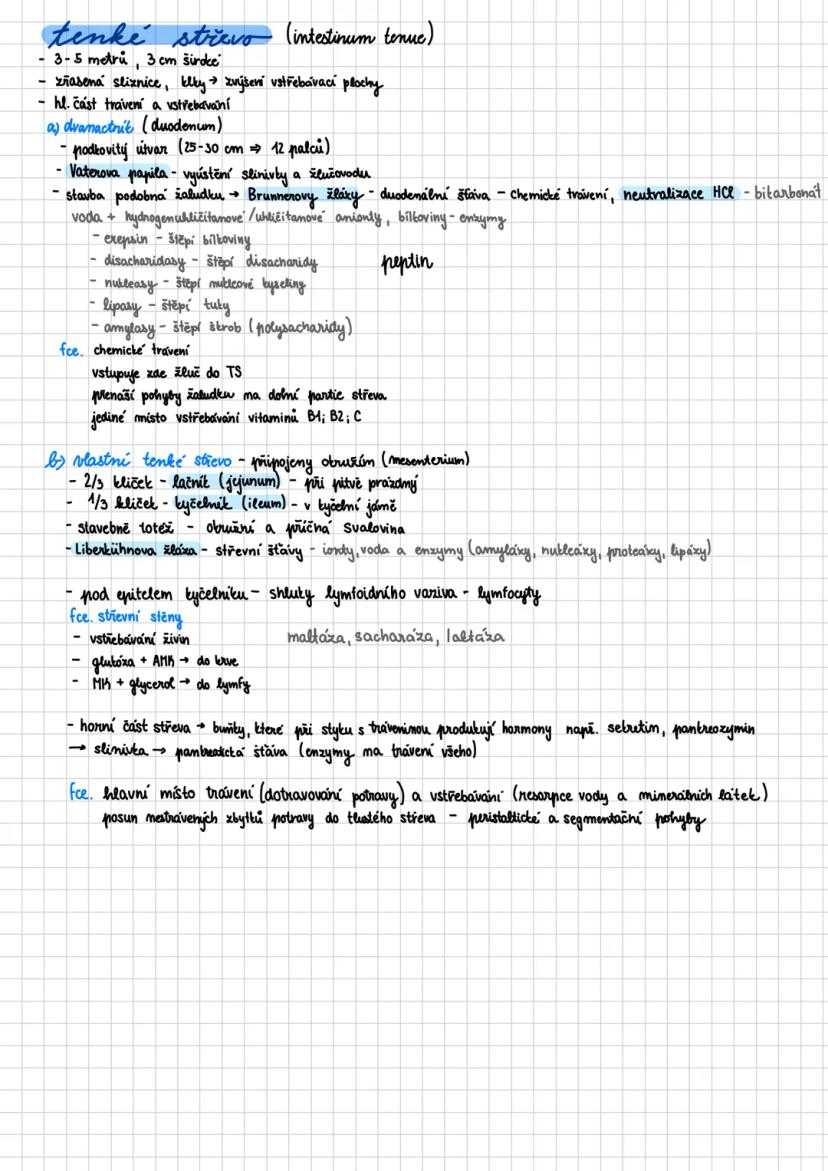 tenké střevo (intestinum tenue)
- 3-5 metrů, 3 cm široké
- zřasená sliznice, klky → zvýšení vstřebávací plochy
- hl. část trávení a vstřebávání
a) dvanáctník (duodenum)
- podkovitý útvar (25-30 cm ⇒ 12 palců)
- Vaterova papila - vyústění slinivky a žlučovodu
- stavba podobná žaludku → Brunnerovy žlázy - duodenální šťáva - chemické trávení, neutralizace HCl - bitarbonát
voda + hydrogenuhličitanové/uhličitanové anionty, bílkoviny - enzymy
- erepsin - štěpí bílkoviny
- disacharidasy - štěpí disacharidy
peptin
- nukleasy - štěpí nukleové kyseliny
- lipasy - štěpí tuky
- amylasy - štěpí škrob (polysacharidy)
fce. chemické trávení
vstupuje zde žluč do TS
přenáší pohyby žaludku na dolní partie střeva
jediné místo vstřebávání vitaminů B1; B2; C
b) vlastní tenké střevo - připojeny okružím (mesenterium)
- 2/3 kliček - lačník (jejunum) - při pitvě prázdný
- 1/3 kliček - kyčelník (ileum) - v kyčelní jámě
- stavebně totéž - okružní a příčná svalovina
- Liberkühnova žláza - střevní šťávy - iondy, voda a enzymy (amylázy, nukleázy, proteázy, lipázy)
- pod epitelem kyčelníku - shluky lymfoidního vaziva - lymfocyty
fce. střevní stěny
- vstřebávání živin
maltáza, sacharáza, laktáza
- glukóza + AMK → do krve
- MK + glycerol → do lymfy
- horní část střeva → buňky, které při styku s tráveninou produkují hormony např. sekretin, pankreozymin
→ slinivka → pankreatická šťáva (enzymy na trávení všeho)
fce. hlavní místo trávení (dotravování potravy) a vstřebávání (resorpce vody a minerálních látek)
posun nestrávených zbytků potravy do tlustého střeva - peristaltické a segmentační pohyby